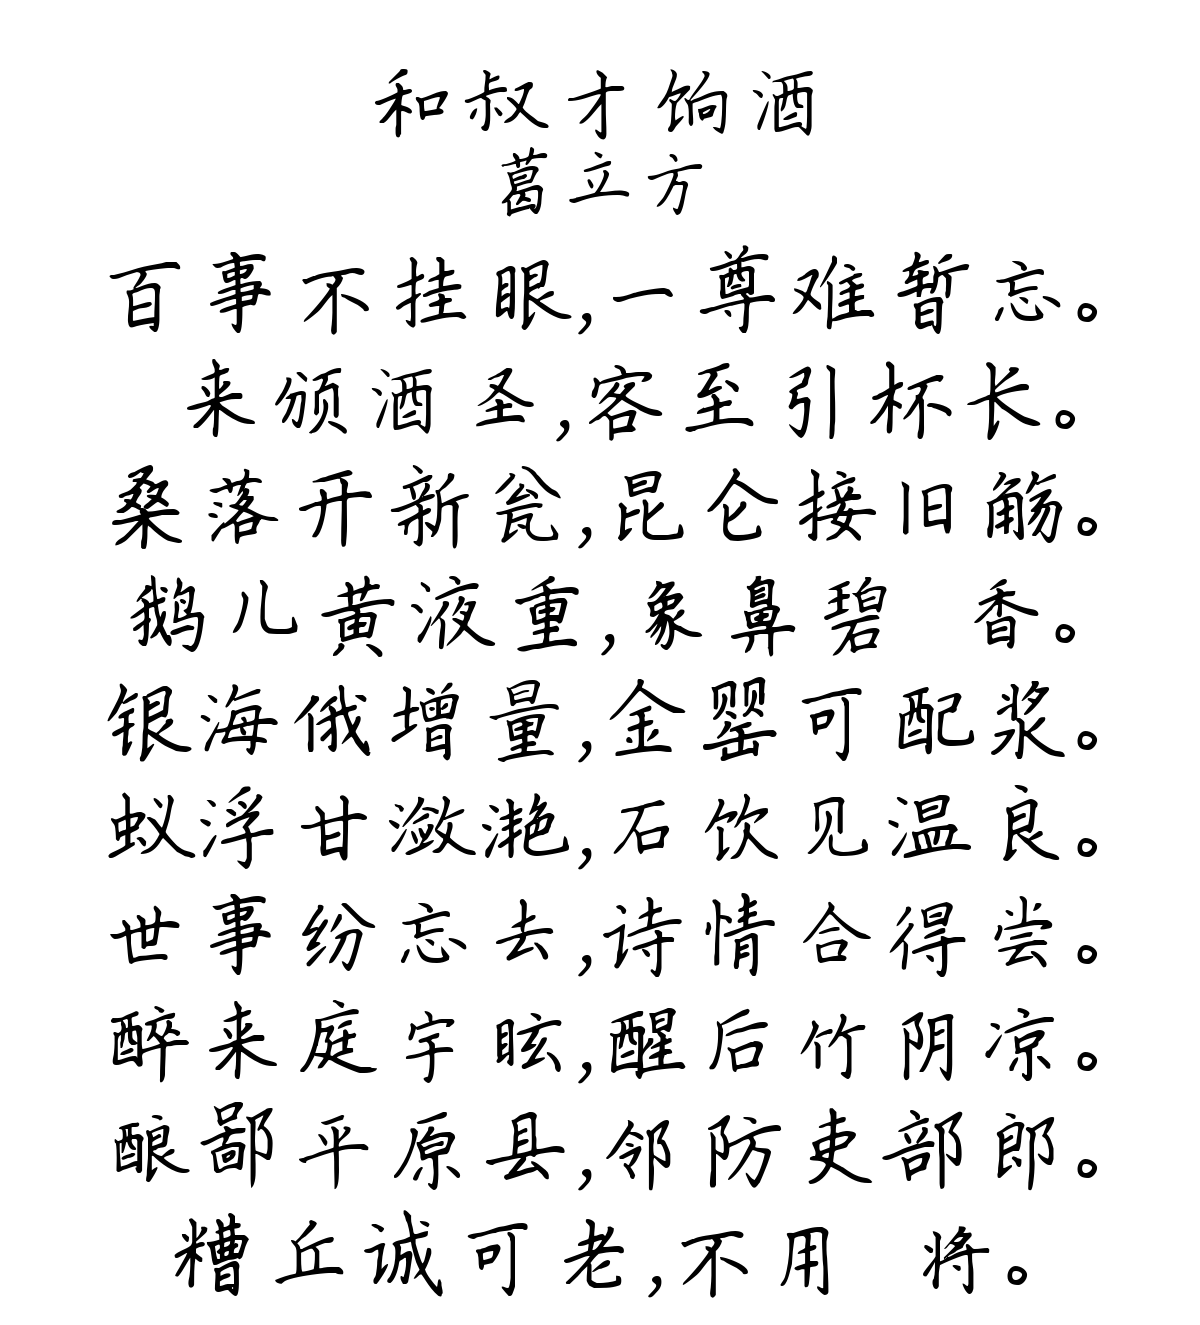 和叔才饷酒
葛立方
百事不挂眼,一尊难暂忘。
来颁酒圣,客至引杯长。
桑落开新瓮,昆仑接旧觞。
鹅儿黄液重,象鼻碧 香。
银海俄增量,金罂可配浆。
蚁浮甘潋滟,石饮见温良。
世事纷忘去,诗情合得尝。
醉来庭宇眩,醒后竹阴凉。
酿鄙平原县,邻防吏部郎。
糟丘诚可老,不用 将。